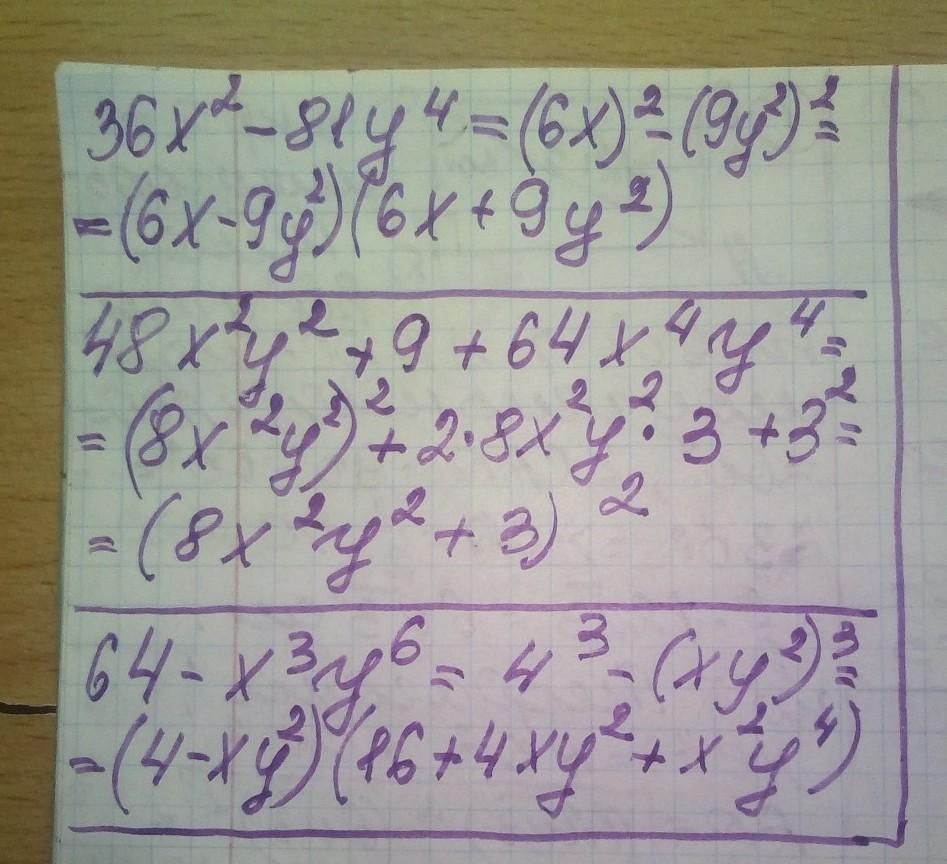 36x² - 81y⁴ = (6x)² - (9y²)² =
= (6x - 9y²)(6x + 9y²)
48x²y² + 9 + 64x⁴y⁴ =
= (8x²y²)² + 2·8x²y²·3 + 3² =
= (8x²y² + 3)²
64 - x³y⁶ = 4³ - (xy²)³ =
= (4 - xy²)(16 + 4xy² + x²y⁴)